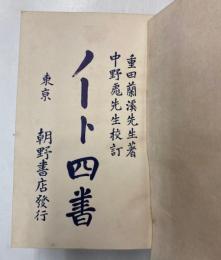 重田蘭溪先生著
中野虎先生校訂
ノート四書
東京 朝野書店發行